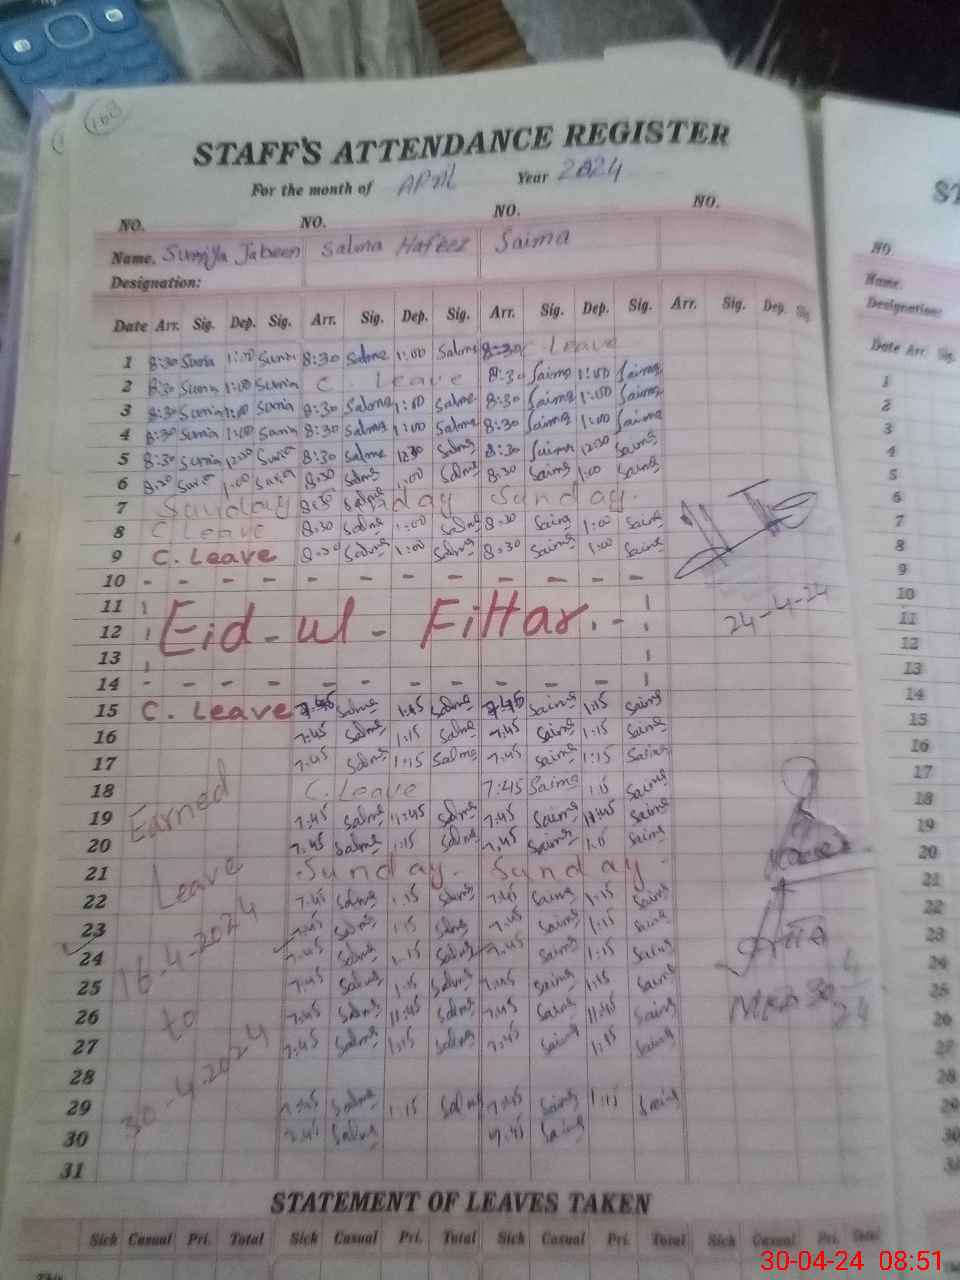 STAFF'S ATTENDANCE REGISTER
For the month of APRIL Year 2024
NO. NO. NO. NO.
Name. Sumyla Jabeen Salma Hafeez Saima
Designation:
Date Arr. Sig. Dep. Sig. Arr. Sig. Dep. Sig. Arr. Sig. Dep. Sig. Arr. Sig. Dep. Sig
1 8:30 Sunia 1:00 Sunia 8:30 Salma 1:00 Salma 8:30 C. Leave
2 8:30 Sunia 1:00 Sunia C. Leave 8:30 Saima 1:00 Saima
3 8:30 Sunia 1:00 Sunia 8:30 Salma 1:00 Salma 8:30 Saima 1:00 Saima
4 8:30 Sunia 1:00 Sunia 8:30 Salma 1:00 Salma 8:30 Saima 1:00 Saima
5 8:30 Sunia 12:30 Sunia 8:30 Salma 12:30 Salma 8:30 Saima 12:30 Saima
6 8:30 Sunia 1:00 Sunia 8:30 Salma 1:00 Salma 8:30 Saima 1:00 Saima
7 Sunday 8:30 Salma day Sunday.
8 C Leave 8:30 Salma 1:00 Salma 8:30 Saima 1:00 Saima
9 C. Leave 8:30 Salma 1:00 Salma 8:30 Saima 1:00 Saima
10 - - - - - - - - - - - - -
11
12 Eid-ul-Fittar. 24-4-24
13
14 - - - - - - - - - - - -
15 C. Leave 7:45 Salma 1:15 Salma 7:45 Saima 1:15 Saima
16 7:45 Salma 1:15 Salma 7:45 Saima 1:15 Saima
17 7:45 Salma 1:15 Salma 7:45 Saima 1:15 Saima
18 C. Leave 7:45 Saima 1:15 Saima
19 Earned 7:45 Salma 11:45 Salma 7:45 Saima 11:45 Saima
20 7:45 Salma 1:15 Salma 7:45 Saima 1:15 Saima
21 Leave Sunday. Sunday
22 7:45 Salma 1:15 Salma 7:45 Saima 1:15 Saima
23 7:45 Salma 1:15 Salma 7:45 Saima 1:15 Saima
24 16-4-2024 7:45 Salma 1:15 Salma 7:45 Saima 1:15 Saima
25 7:45 Salma 1:15 Salma 7:45 Saima 1:15 Saima
26 to 7:45 Salma 11:45 Salma 7:45 Saima 11:45 Saima
27 7:45 Salma 1:15 Salma 7:45 Saima 1:15 Saima
28
29 30-4-2024 7:45 Salma 1:15 Salma 7:45 Saima 1:15 Saima
30 7:45 Salma 7:45 Saima
31
STATEMENT OF LEAVES TAKEN
Sick Casual Pri. Total Sick Casual Pri. Total Sick Casual Pri. Total Sick Casual Pri. Total
This
NO.
Name.
Designation:
Date Arr. Sig.
1
2
3
4
5
6
7
8
9
10
11
12
13
14
15
16
17
18
19
20
21
22
23
24
25
26
27
28
29
30
30-04-24 08:51